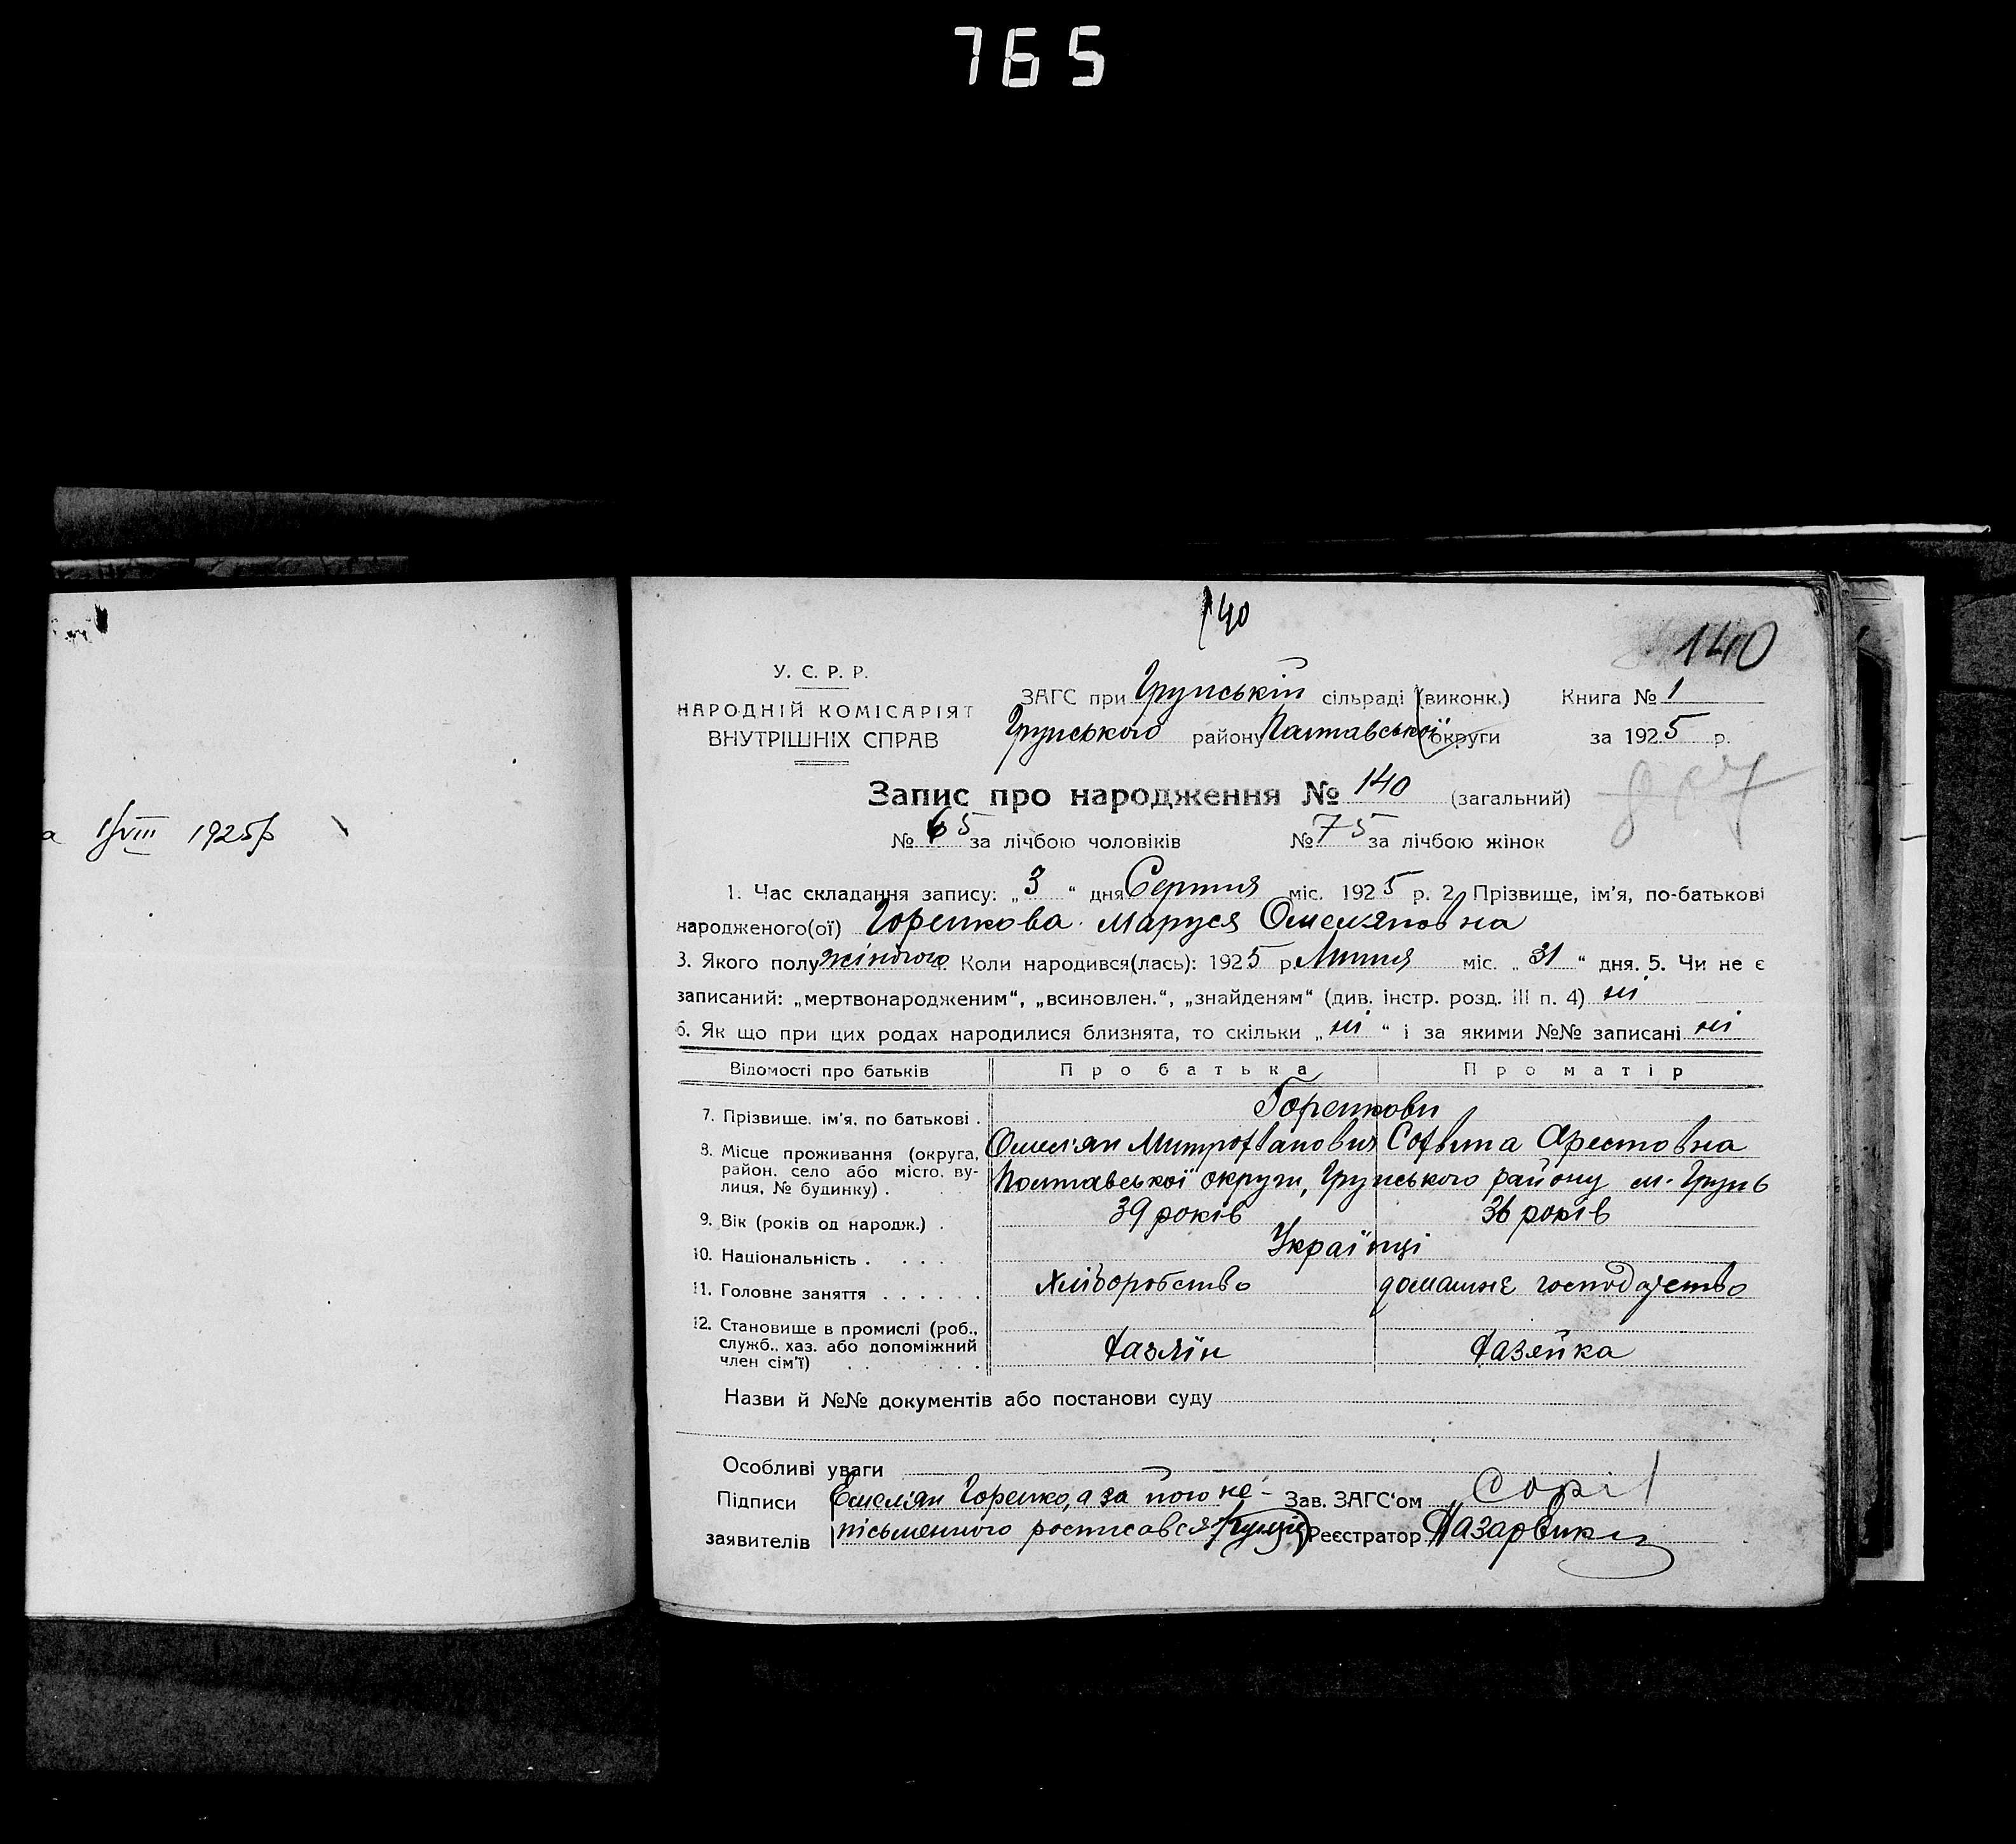 765
140
140
У. С. Р. Р.
НАРОДНІЙ КОМІСАРІЯТ
ВНУТРІШНІХ СПРАВ
ЗАГС при Грунській сільраді (виконк.)
Грунського району Полтавської округи
Книга № 1
за 1925 р.
Запис про народження № 140 (загальний)
№ 65 за лічбою чоловіків № 75 за лічбою жінок
а 1/VIII 1925р
1. Час складання запису: „3“ дня Серпня міс. 1925 р. 2. Прізвище, ім'я, по-батькові
народженого(ої) Горенкова Маруся Омеляновна
3. Якого полу жіночого. Коли народився(лась): 1925 р. Липня міс. „31“ дня. 5. Чи не є
записаний: „мертвонародженим“, „всиновлен.“, „знайденям“ (див. інстр. розд. III п. 4) ні
6. Як що при цих родах народилися близнята, то скільки „ні“ і за якими №№ записані ні
Відомості про батьків Про батька Про матір
7. Прізвище. ім'я, по батькові . Горенкови
Омелян Митрофанович
8. Місце проживання (округа, район. село або місто. вулиця, № будинку) . Полтавської округи, Грунського району м. Грунь
9. Вік (років од народж.) . 39 років 36 років
10. Національність . . . . Українці
11. Головне заняття . . . . . . хліборобство домашнє господарство
12. Становище в промислі (роб.,
служб.. хаз. або допоміжний
член сім'ї) . . . . . . .
Назви й №№ документів або постанови суду
Особливі уваги
Підписи Омелян Горенко, а за його не- Зав. ЗАГС'ом
заявителів письменного росписався Реєстратор